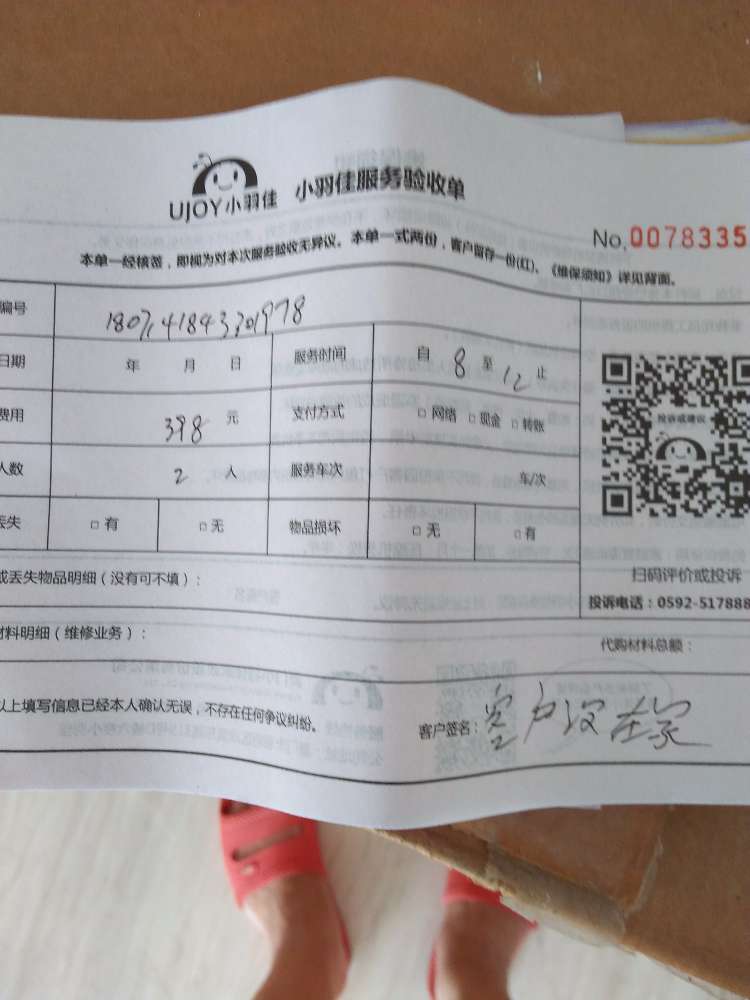 UJOY小羽佳 小羽佳服务验收单
No.0078335
本单一经核签，即视为对本次服务验收无异议。本单一式两份，客户留存一份(红)。《维保须知》详见背面。
编号
日期 年 月 日 服务时间 自 8 至 12 止
费用 398 元 支付方式 □ 网络 □ 现金 □ 转账
人数 2 人 服务车次 车/次
丢失 □ 有 □ 无 物品损坏 □ 无 □ 有
投诉或建议
扫码评价或投诉
投诉电话：0592-517888
或丢失物品明细（没有可不填）：
材料明细（维修业务）：
代购材料总额：
以上填写信息已经本人确认无误，不存在任何争议纠纷。
客户签名：客户没在家